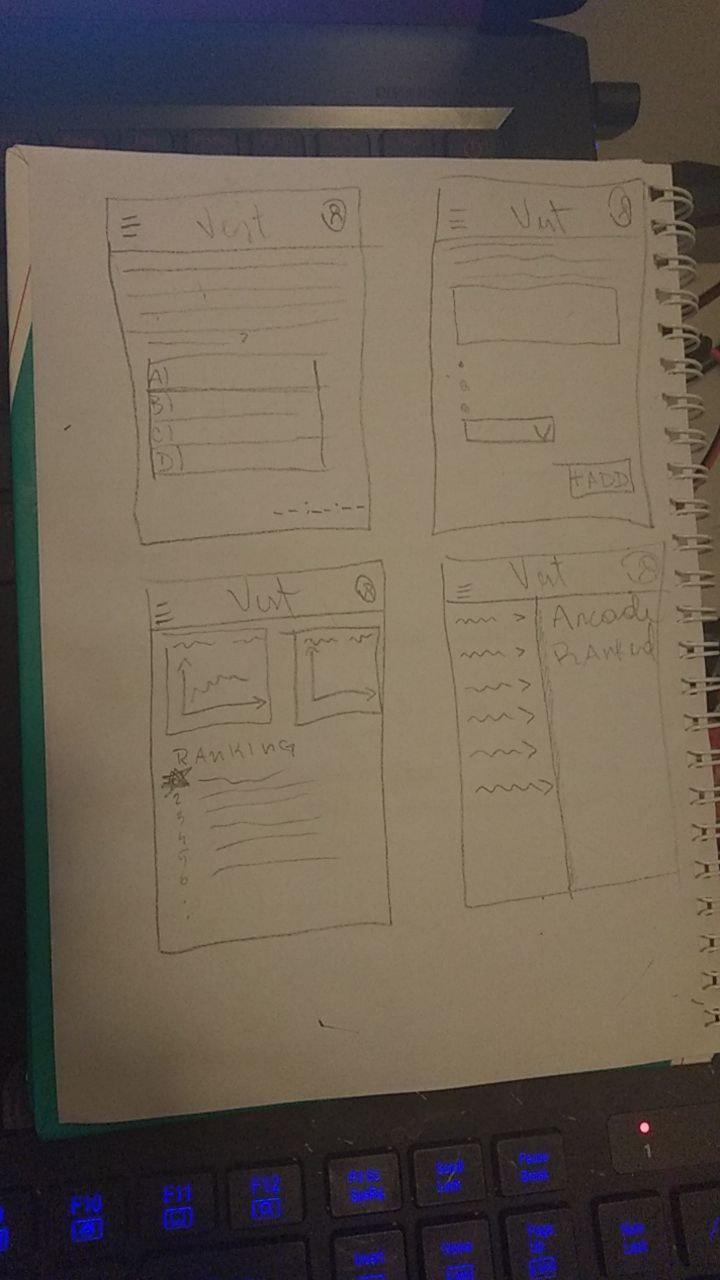 Vest
?
A)
B)
C)
D)
Vest
+ADD
Vest
RANKING
2
3
4
5
6
Vest
Arcade
Ranked
F10
F11
F12
Prt Sc
SysRq
Scroll
Lock
Pause
Break
1
Insert
Home
Page
Up
Num
Lock